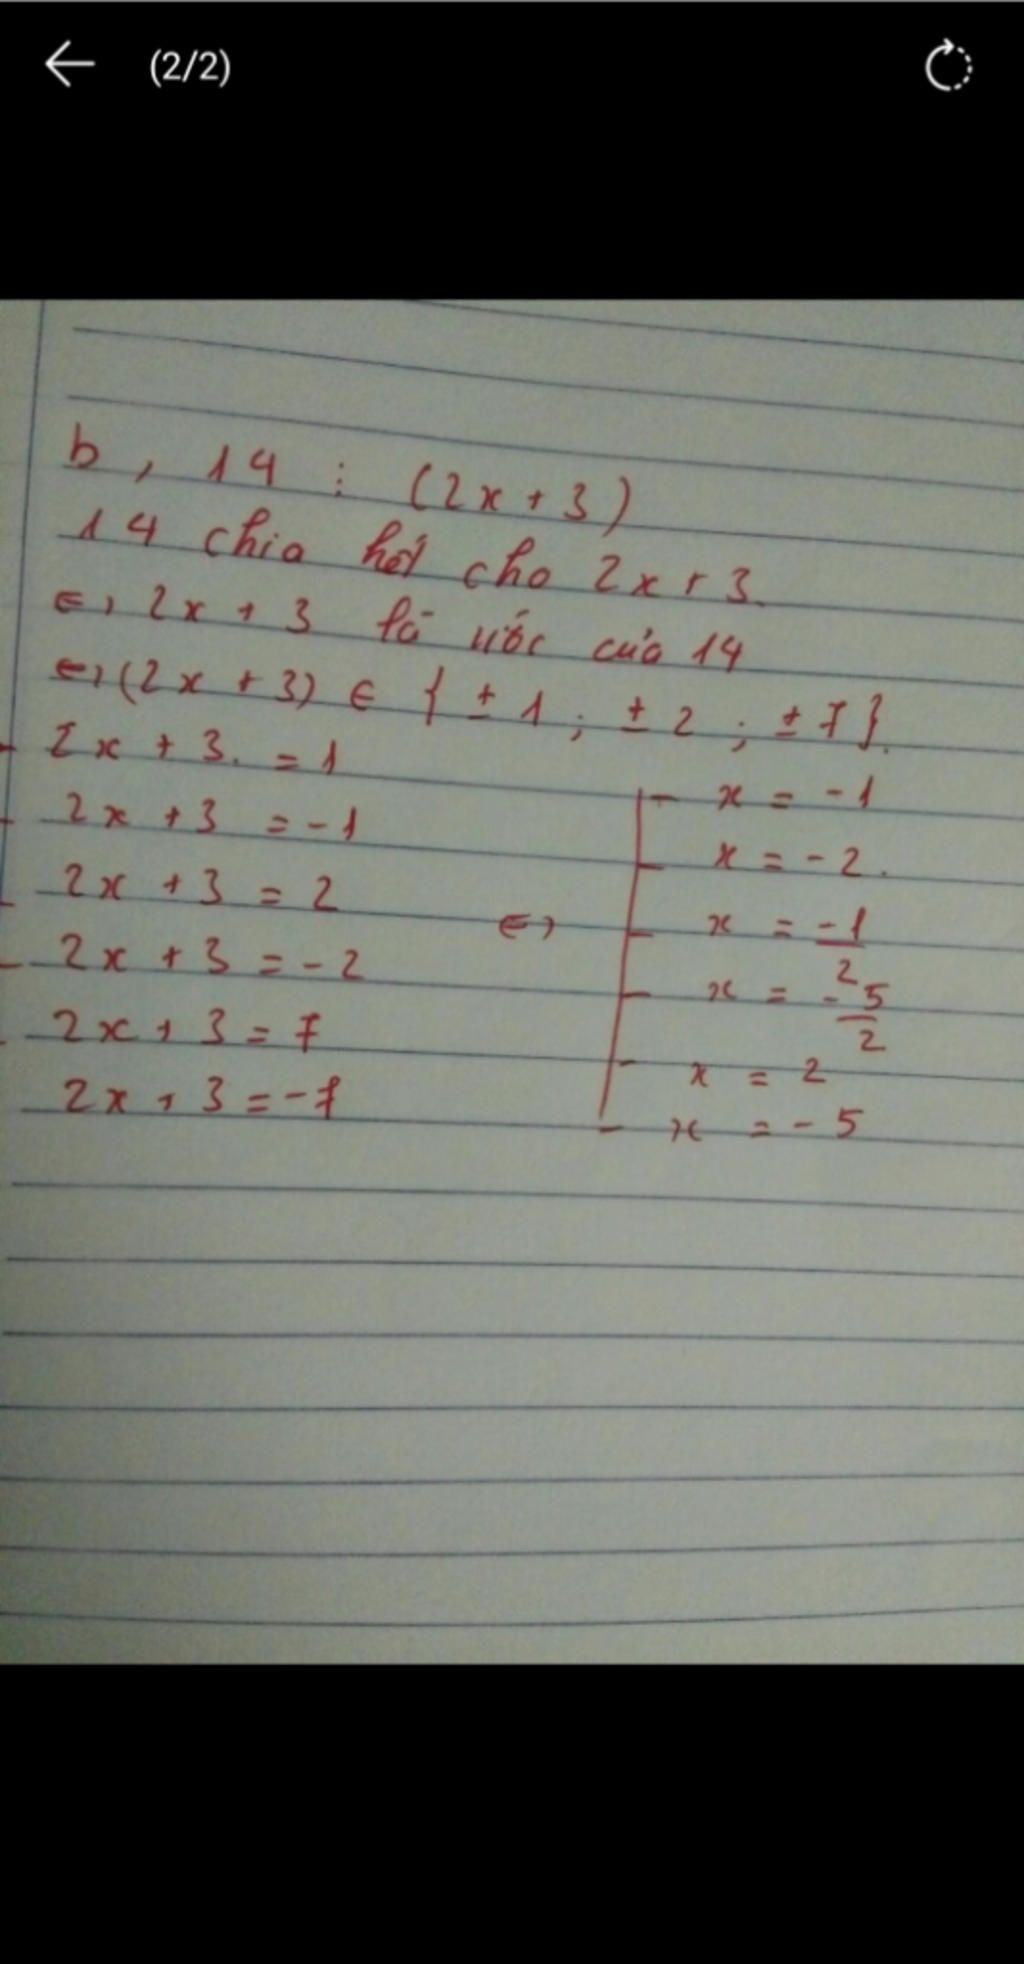 (2/2)
b, 14 ⋮ (2x + 3)
14 chia hết cho 2x + 3.
⇔ 2x + 3 là ước của 14
⇔ (2x + 3) ∈ { ± 1 ; ± 2 ; ± 7 }.
2x + 3. = 1
2x + 3 = -1
2x + 3 = 2
2x + 3 = -2
2x + 3 = 7
2x + 3 = -7
⇔
x = -1
x = -2.
x = -1/2
x = -5/2
x = 2
x = -5